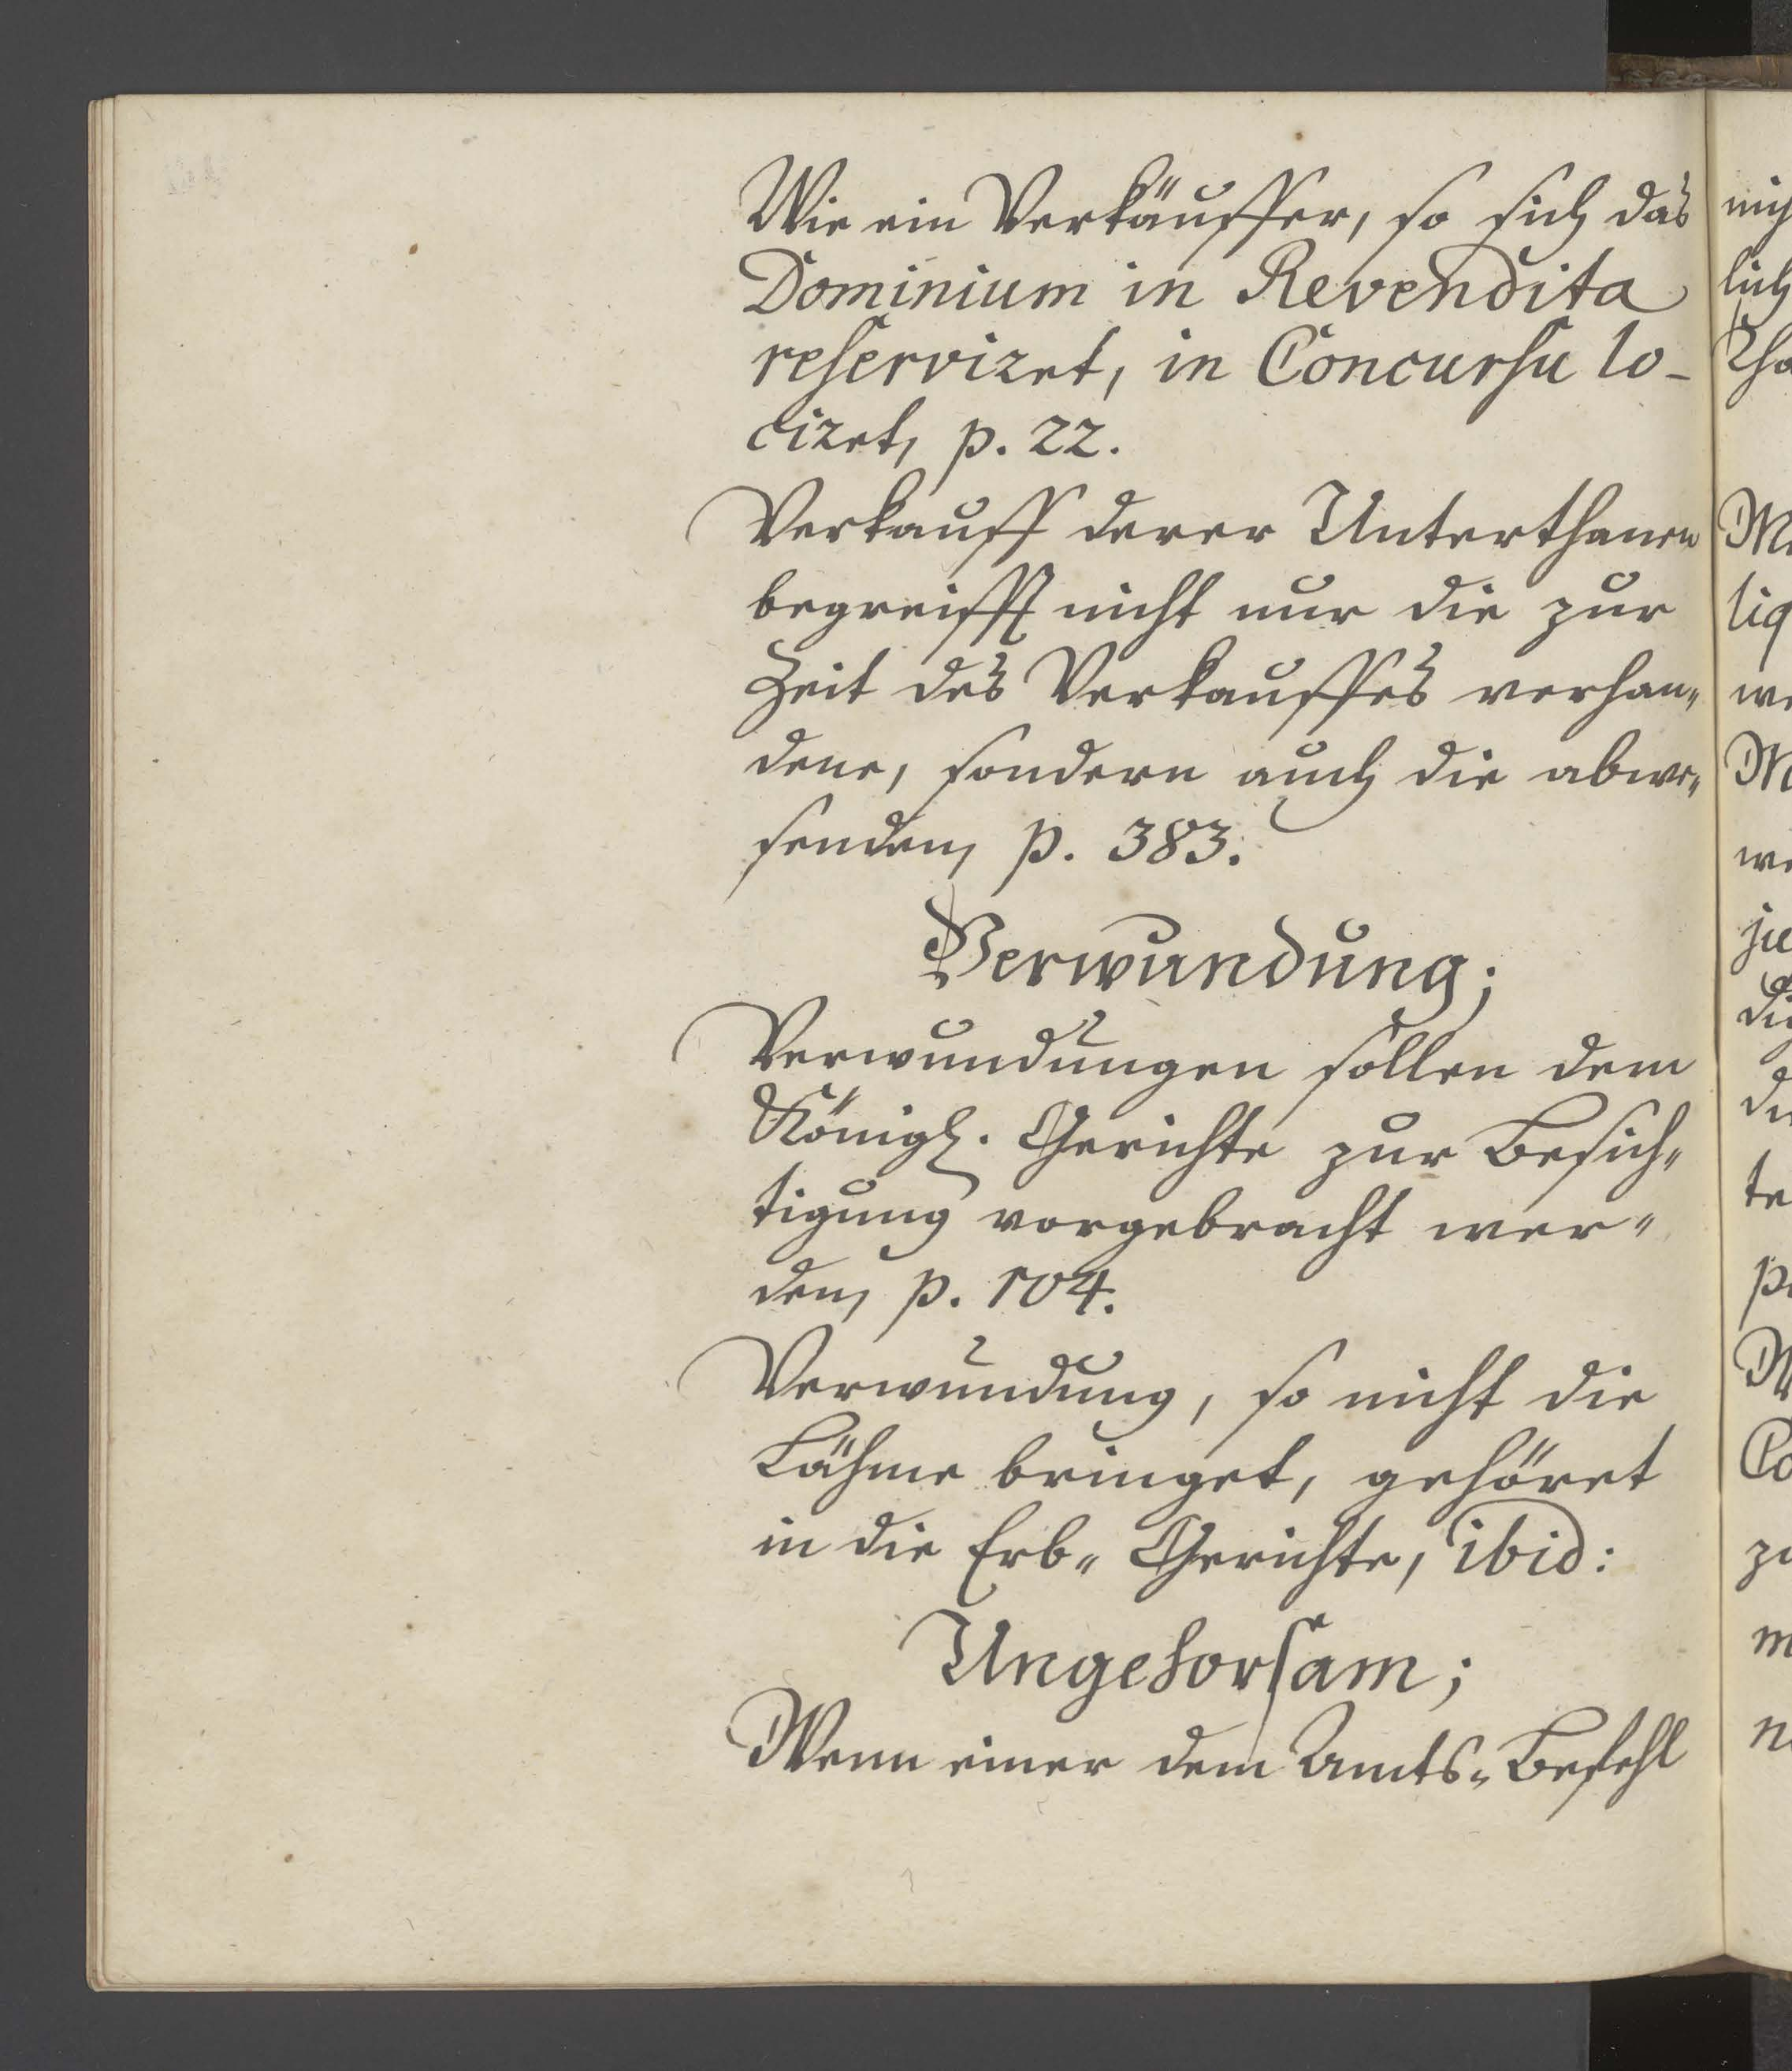 Wie ein Verkäuffer, so sich das
Dominium in Revendita
reserviret, in Concursu lo-
ciret, p. 22.
Verkauff derer Unterthanen
begreifft nicht nur die zur
Zeit des Verkauffes verhan-
dene, sondern auch die abwe-
senden, p. 383.
Verwundung;
Verwundungen sollen dem
Königl. Gerichte zur Besich-
tigung vorgebracht wer-
den, p. 104.
Verwundung, so nicht die
Lähme bringet, gehöret
in die Erb- Gerichte, ibid:
Ungehorsam;
Wenn einer dem Amts- Befehl